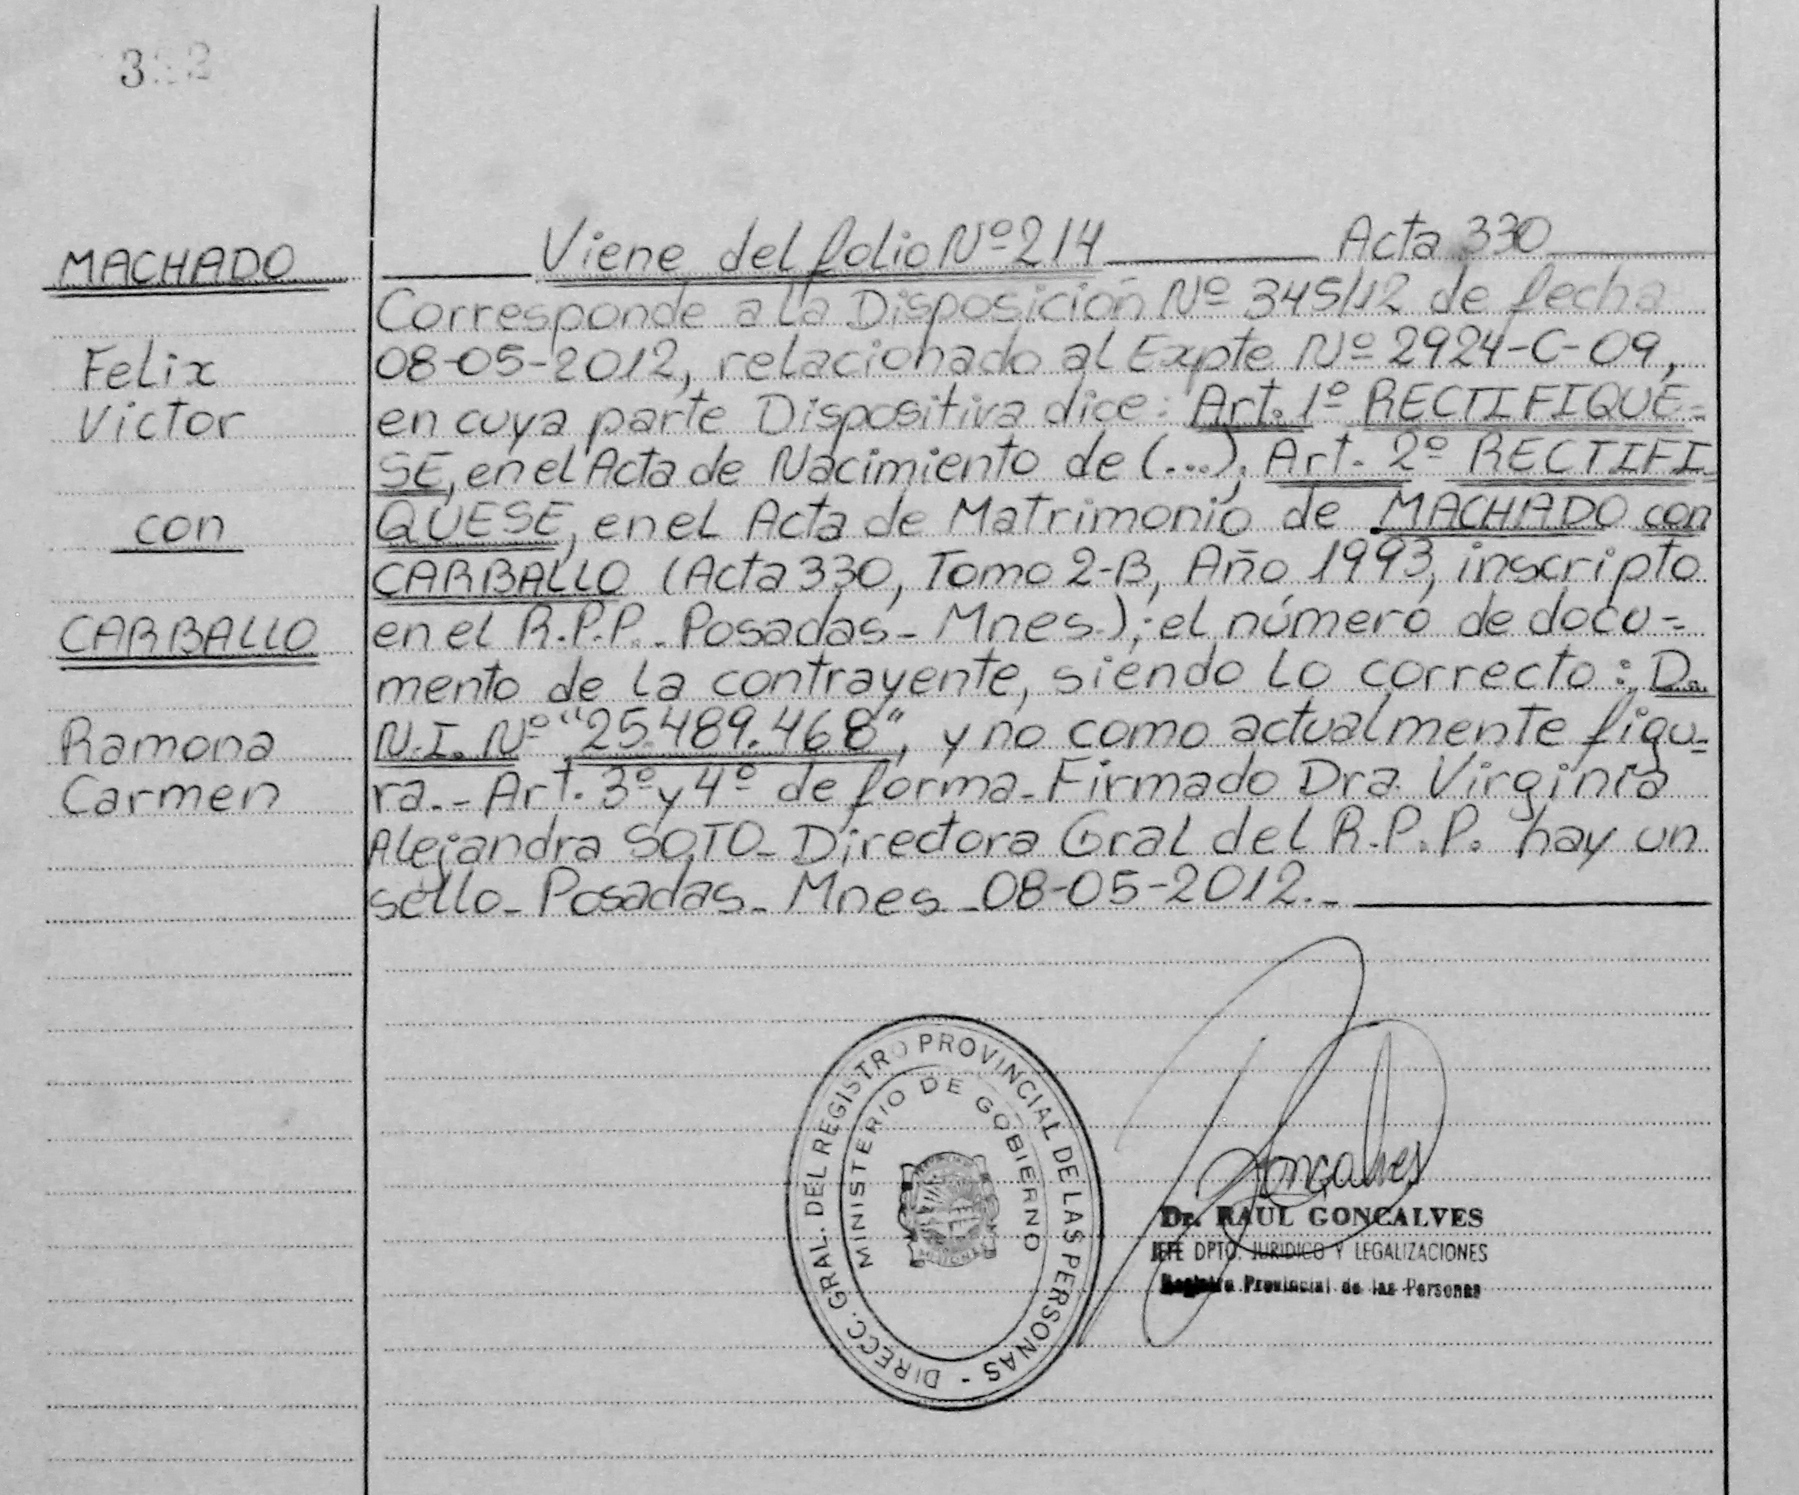 MACHADO
Felix
Victor
con
CARBALLO
Ramona
Carmen
Viene del folio Nº 214 Acta 330
Corresponde a la Disposición Nº 345/12 de fecha
08-05-2012, relacionado al Expte Nº 2924-C-09,
en cuya parte Dispositiva dice: Art. 1º RECTIFIQUE=
SE, en el Acta de Nacimiento de (...), Art. 2º RECTIFI
QUESE, en el Acta de Matrimonio de MACHADO con
CARBALLO (Acta 330, Tomo 2-B, Año 1993, inscripto
en el R.P.P. Posadas - Mnes.); el número de docu=
mento de la contrayente, siendo lo correcto: D.
N.I. Nº "25.489.468", y no como actualmente figu=
ra.- Art. 3º y 4º de forma - Firmado Dra. Virginia
Alejandra SOTO - Directora Gral del R.P.P. hay un
sello - Posadas - Mnes - 08-05-2012.-
DIRECC. GRAL. DEL REGISTRO PROVINCIAL DE LAS PERSONAS -
MINISTERIO DE GOBIERNO
Goncalves
Dr. RAUL GONCALVES
JEFE DPTO. JURIDICO Y LEGALIZACIONES
Registro Provincial de las Personas